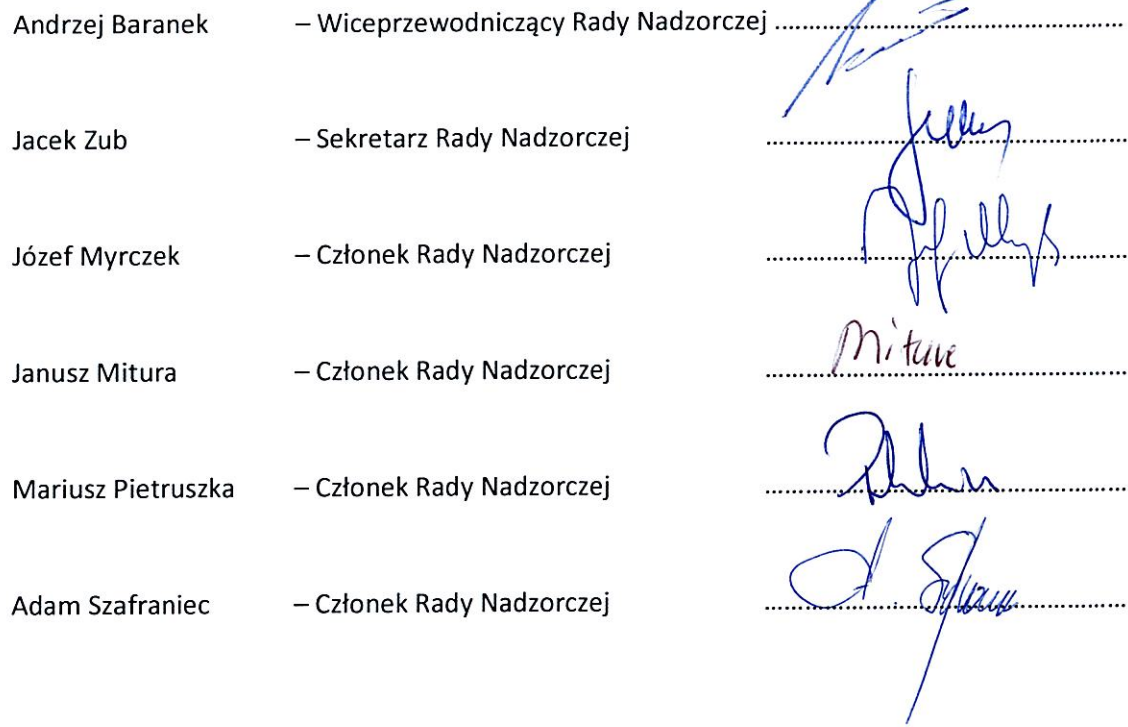 Andrzej Baranek – Wiceprzewodniczący Rady Nadzorczej ........................................................
Jacek Zub – Sekretarz Rady Nadzorczej ........................................................
Józef Myrczek – Członek Rady Nadzorczej ........................................................
Janusz Mitura – Członek Rady Nadzorczej ........................................................
Mariusz Pietruszka – Członek Rady Nadzorczej ........................................................
Adam Szafraniec – Członek Rady Nadzorczej ........................................................